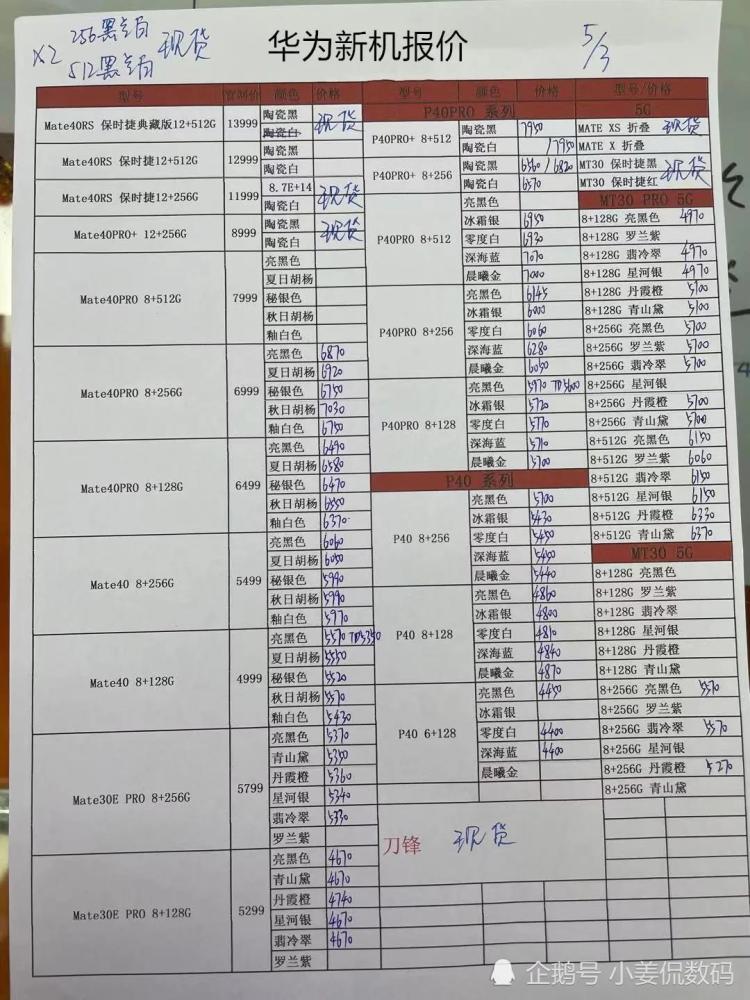 X2 256黑白 现货
512黑白
华为新机报价
5/3
型号 官制价 颜色 价格
Mate40RS 保时捷典藏版12+512G 13999 陶瓷黑 现货
陶瓷白
Mate40RS 保时捷12+512G 12999 陶瓷黑
陶瓷白
Mate40RS 保时捷12+256G 11999 8.7E+14 现货
陶瓷白
Mate40PRO+ 12+256G 8999 陶瓷黑 现货
陶瓷白
Mate40PRO 8+512G 7999 亮黑色
夏日胡杨
秘银色
秋日胡杨
釉白色
Mate40PRO 8+256G 6999 亮黑色 6870
夏日胡杨 6920
秘银色 6750
秋日胡杨 7030
釉白色 6750
Mate40PRO 8+128G 6499 亮黑色 6490
夏日胡杨 6580
秘银色 6470
秋日胡杨 6550
釉白色 6370
Mate40 8+256G 5499 亮黑色 6060
夏日胡杨 6050
秘银色 5990
秋日胡杨 5990
釉白色 5970
Mate40 8+128G 4999 亮黑色 5570 TD5350
夏日胡杨 5550
秘银色 5520
秋日胡杨 5570
釉白色 5430
Mate30E PRO 8+256G 5799 亮黑色 5370
青山黛 5350
丹霞橙 5360
星河银 5340
翡冷翠 5330
罗兰紫
Mate30E PRO 8+128G 5299 亮黑色 4670
青山黛 4670
丹霞橙 4740
星河银 4670
翡冷翠 4670
罗兰紫
型号 颜色 价格
P40PRO 系列
P40PRO+ 8+512 陶瓷黑 7950
陶瓷白 /7950
P40PRO+ 8+256 陶瓷黑 6560/6820
陶瓷白 6570
P40PRO 8+512 亮黑色
冰霜银 6950
零度白 6930
深海蓝 7070
晨曦金 7000
P40PRO 8+256 亮黑色 6145
冰霜银 6000
零度白 6060
深海蓝 6280
晨曦金 6050
P40PRO 8+128 亮黑色 5970 TD5600
冰霜银 5720
零度白 5770
深海蓝 5710
晨曦金 5700
P40 系列
P40 8+256 亮黑色 5700
冰霜银 5430
零度白 5450
深海蓝 5450
晨曦金 5440
P40 8+128 亮黑色 4860
冰霜银 4800
零度白 4810
深海蓝 4840
晨曦金 4870
P40 6+128 亮黑色 4450
冰霜银
零度白 4400
深海蓝 4400
晨曦金
刀锋 现货
型号/价格
5G
MATE XS 折叠 现货
MATE X 折叠
MT30 保时捷黑 现货
MT30 保时捷红
MT30 PRO 5G
8+128G 亮黑色 4970
8+128G 罗兰紫
8+128G 翡冷翠 4970
8+128G 星河银 4970
8+128G 丹霞橙 5100
8+128G 青山黛 5100
8+256G 亮黑色 5700
8+256G 罗兰紫 5700
8+256G 翡冷翠 5700
8+256G 星河银
8+256G 丹霞橙 5700
8+256G 青山黛 5700
8+512G 亮黑色 6150
8+512G 罗兰紫 6060
8+512G 翡冷翠 6150
8+512G 星河银 6150
8+512G 丹霞橙 6330
8+512G 青山黛 6370
MT30 5G
8+128G 亮黑色
8+128G 罗兰紫
8+128G 翡冷翠
8+128G 星河银
8+128G 丹霞橙
8+128G 青山黛
8+256G 亮黑色 5570
8+256G 罗兰紫
8+256G 翡冷翠 5570
8+256G 星河银
8+256G 丹霞橙 5270
8+256G 青山黛
企鹅号 小姜侃数码